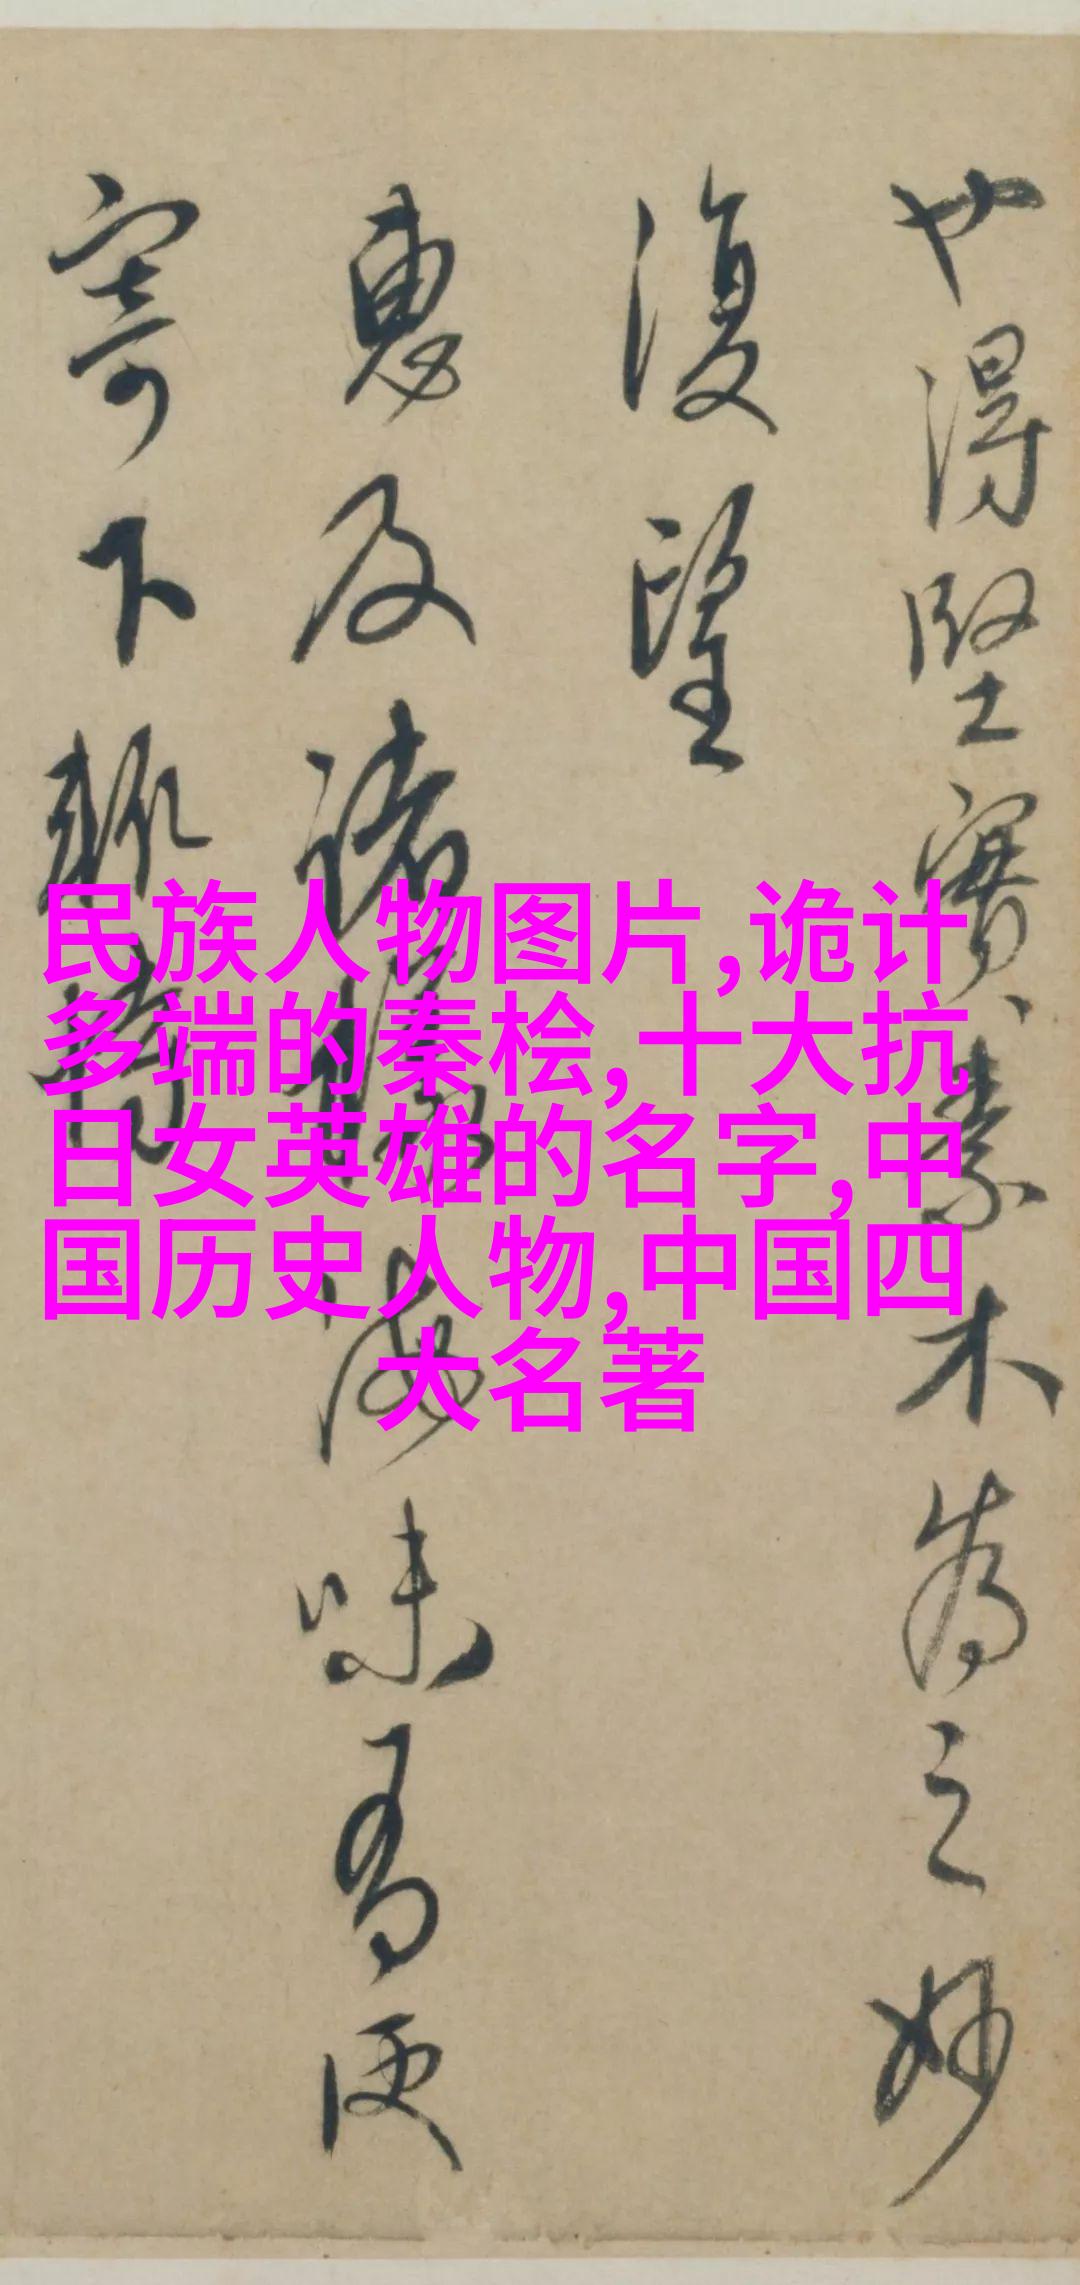 也得坚實素木为之妙
復望
惠及诸
海味為便
寄下
民族人物图片,诡计
多端的秦桧,十大抗
日女英雄的名字,中
国历史人物,中国四
大名著